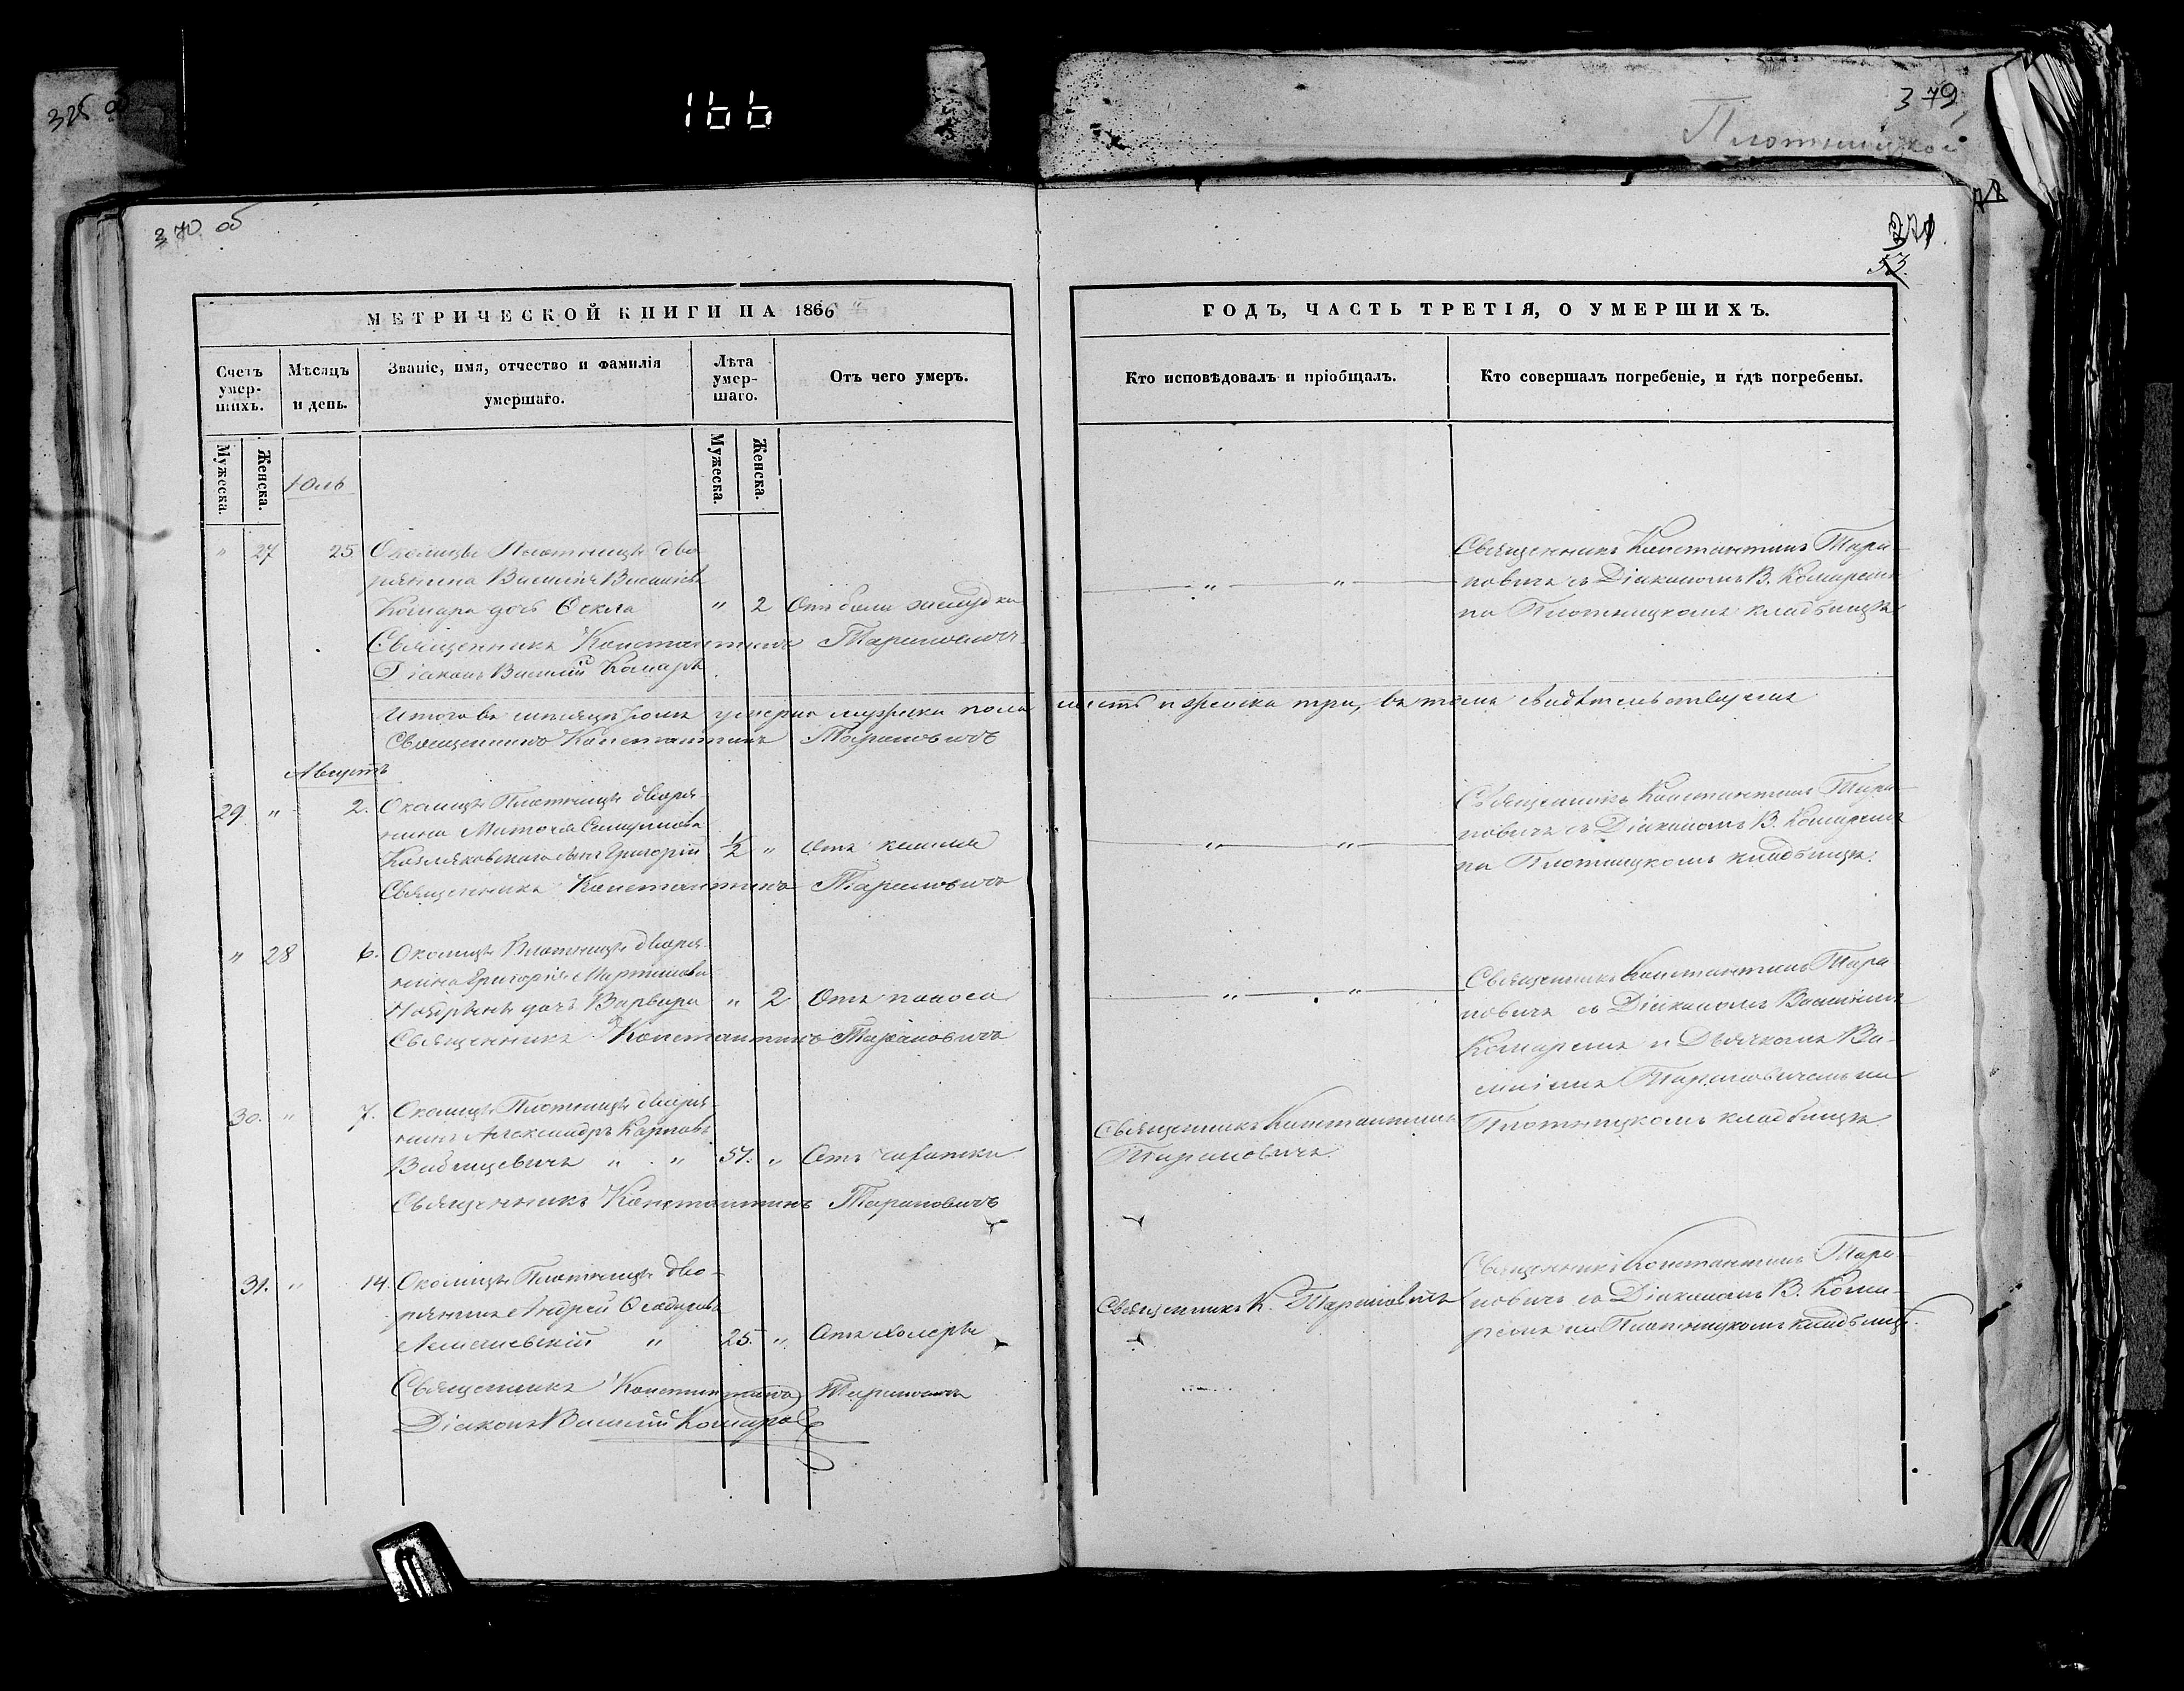 166
325 об
379
Плотницкой
370 об
271
53.
МЕТРИЧЕСКОЙ КНИГИ НА 1866
ГОДЪ, ЧАСТЬ ТРЕТІЯ, О УМЕРШИХЪ.
Счетъ умер-шихъ.
Мѣсяцъ и день.
Званіе, имя, отчество и фамилія умершаго.
Лѣта умер-шаго.
Отъ чего умеръ.
Кто исповѣдовалъ и пріобщалъ.
Кто совершалъ погребеніе, и гдѣ погребены.
Мужеска.
Женска.
Мужеска.
Женска.
Юль
" 27 25 Околицы Плотницы дво-
рянина Василія Васильева
Комара дочь Фекла " 2 Отъ боли желудка
Священникъ Константинъ Тарановичъ
Діаконъ Василій Комаръ
" "
Священникъ Константинъ Тара-
новичъ съ Діакономъ В. Комаремъ
на Плотницкомъ кладбищѣ
Итого въ мѣсяцѣ Юлѣ умерло мужеска пола шесть и женска три, въ томъ свидѣтельствуемъ
Священникъ Константинъ Тарановичъ
Августъ
29 " 2. Околицы Плотницы дворя-
нина
сынъ Григорій ½ " Отъ кашля
Священникъ Константинъ Тарановичъ
" "
Священникъ Константинъ Тара-
новичъ съ Діакономъ В. Комаремъ
на Плотницкомъ кладбищѣ.
" 28 6. Околицы Плотницы дворя-
нина Григорія Мартинова
дочь Варвара " 2 Отъ поноса
Священникъ Константинъ Тарановичъ
" "
Священникъ Константинъ Тара
новичъ съ Діакономъ Василіемъ
Комаремъ и Дьячкомъ Ва-
силіемъ Тарановичемъ на
Плотницкомъ кладбищѣ
30. " 7. Околицы Плотницы дворя-
нинъ Александръ Карповъ
" " 51. " Отъ чахотки
Священникъ Константинъ Тарановичъ
Священникъ Константинъ
Тарановичъ
31. " 14. Околицы Плотницы дво-
рянинъ Андрей Феодоровъ
" 25. " Отъ холеры
Священникъ Константинъ Тарановичъ
Діаконъ Василій Комаръ
Священникъ К. Тарановичъ
Священникъ Константинъ Тара-
новичъ съ Діакономъ В. Кома-
ремъ на Плотницкомъ кладбищѣ.